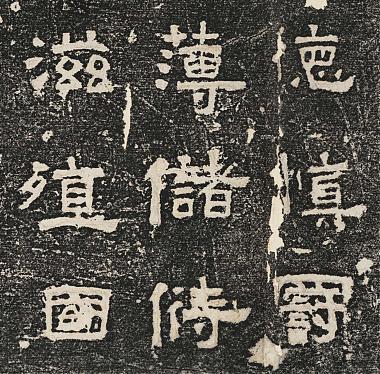 德慎罰
薄儲偫
滋殖國